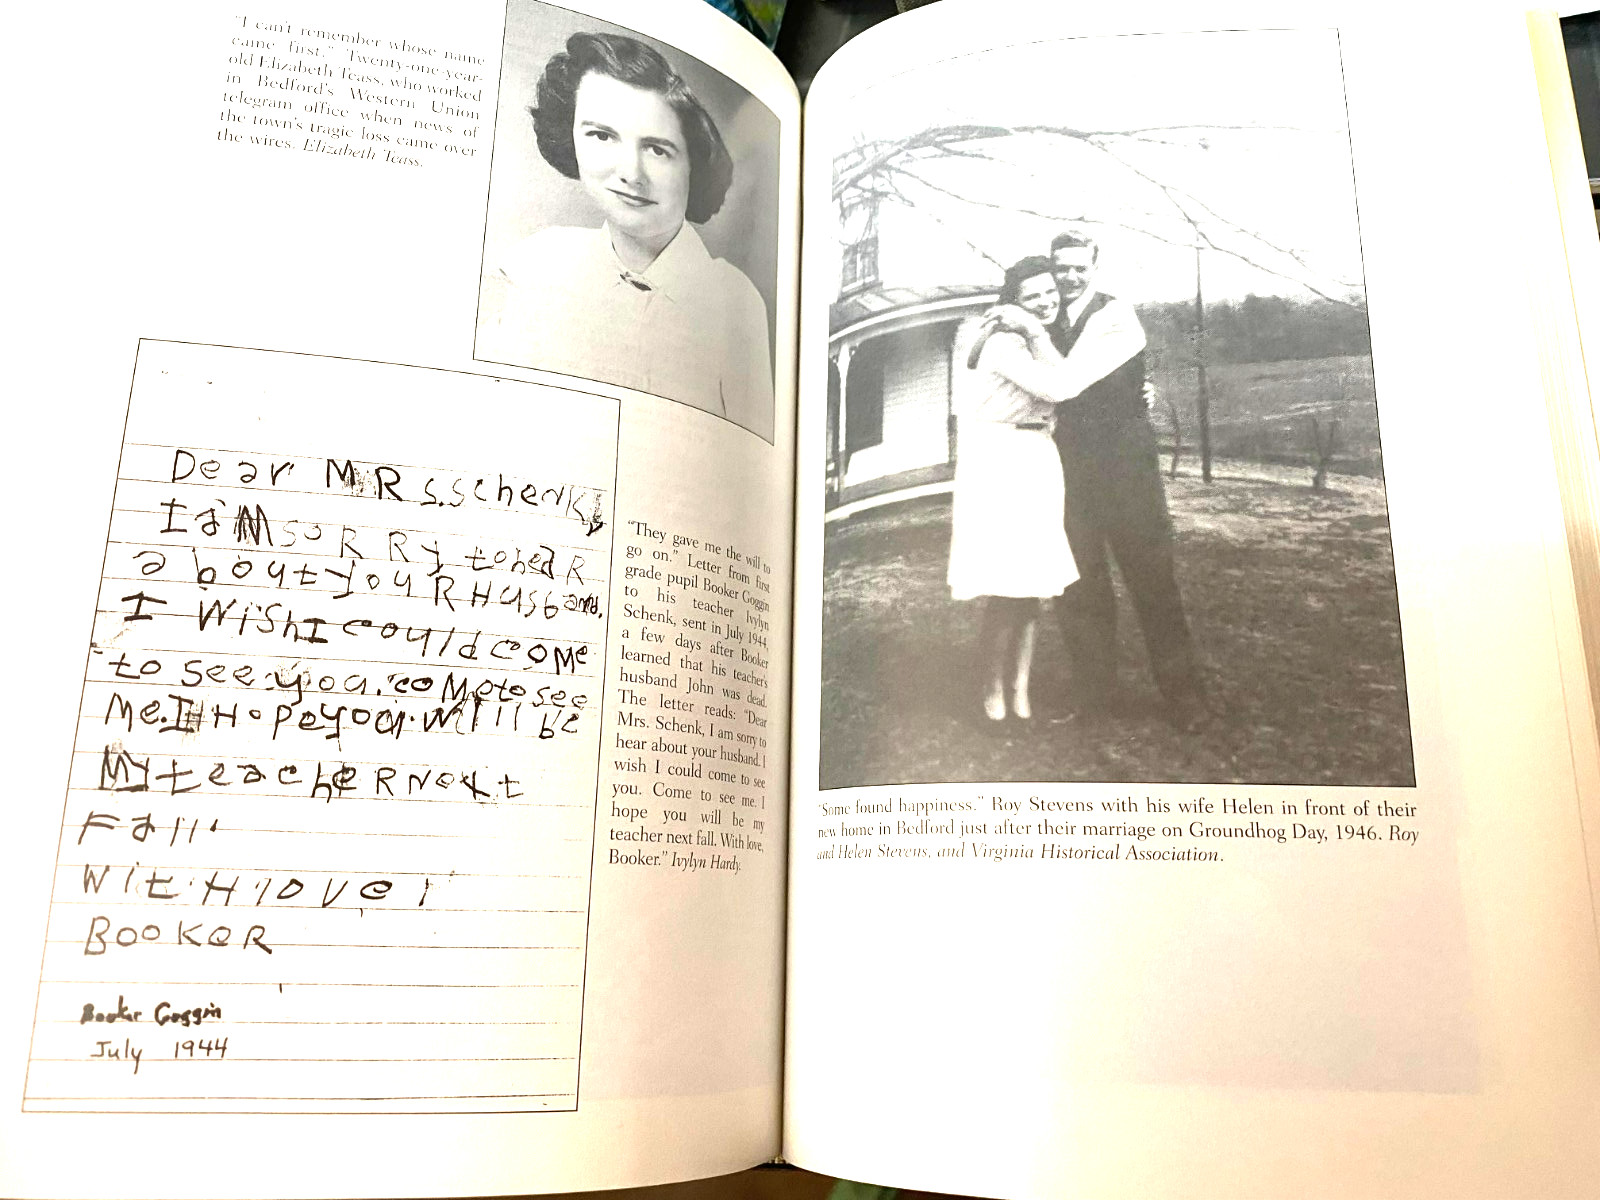 "I can't remember whose name
came first." Twenty-one-year-
old Elizabeth Teass, who worked
in Bedford's Western Union
telegram office when news of
the town's tragic loss came over
the wires. Elizabeth Teass.
Dear MRs.schenk,
I aM soRRy toheaR
about youR Husband.
I WishI couldcoMe
to see you.coMetosee
Me.I Hopeyou.will be
MyteacheRNext
Fall.
WitHlove,
BookeR
Booker Goggin
July 1944
"They gave me the will to
go on." Letter from first
grade pupil Booker Goggin
to his teacher Ivylyn
Schenk, sent in July 1944,
a few days after Booker
learned that his teacher's
husband John was dead.
The letter reads: "Dear
Mrs. Schenk, I am sorry to
hear about your husband. I
wish I could come to see
you. Come to see me. I
hope you will be my
teacher next fall. With love,
Booker." Ivylyn Hardy.
"Some found happiness." Roy Stevens with his wife Helen in front of their
new home in Bedford just after their marriage on Groundhog Day, 1946. Roy
and Helen Stevens, and Virginia Historical Association.